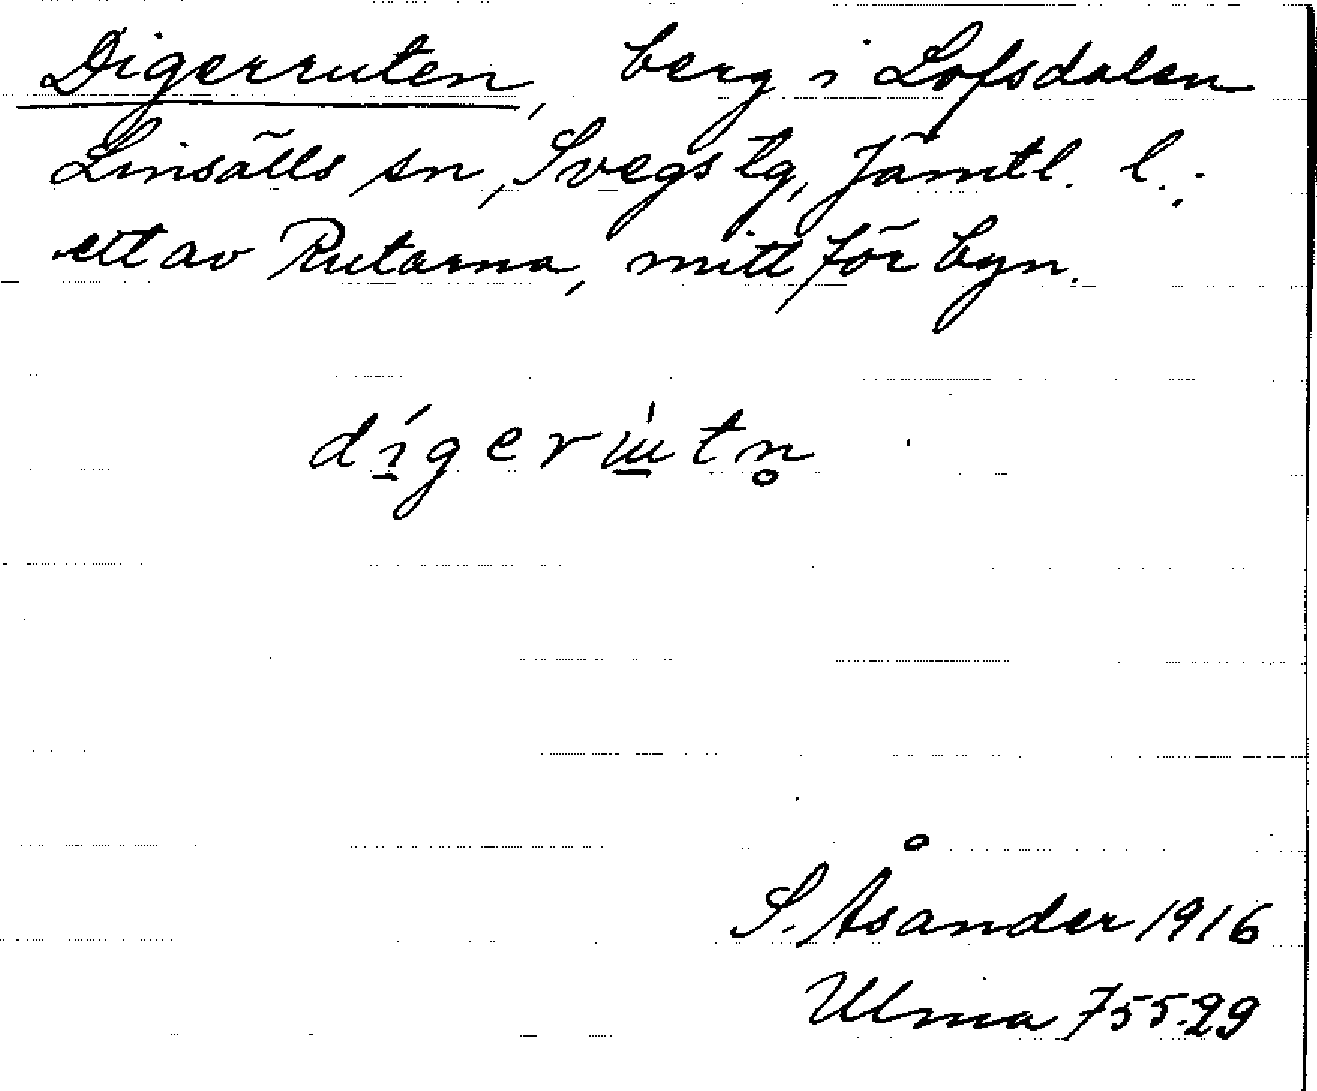 Digerruten, berg i Lofsdalen
Linsälls sn, Svegs tg, Jämtl. l.;
ett av Rutarna, mitt för byn.
di̱gerɯ̱tn̥
S. Åsander 1916
Ulma 755.29